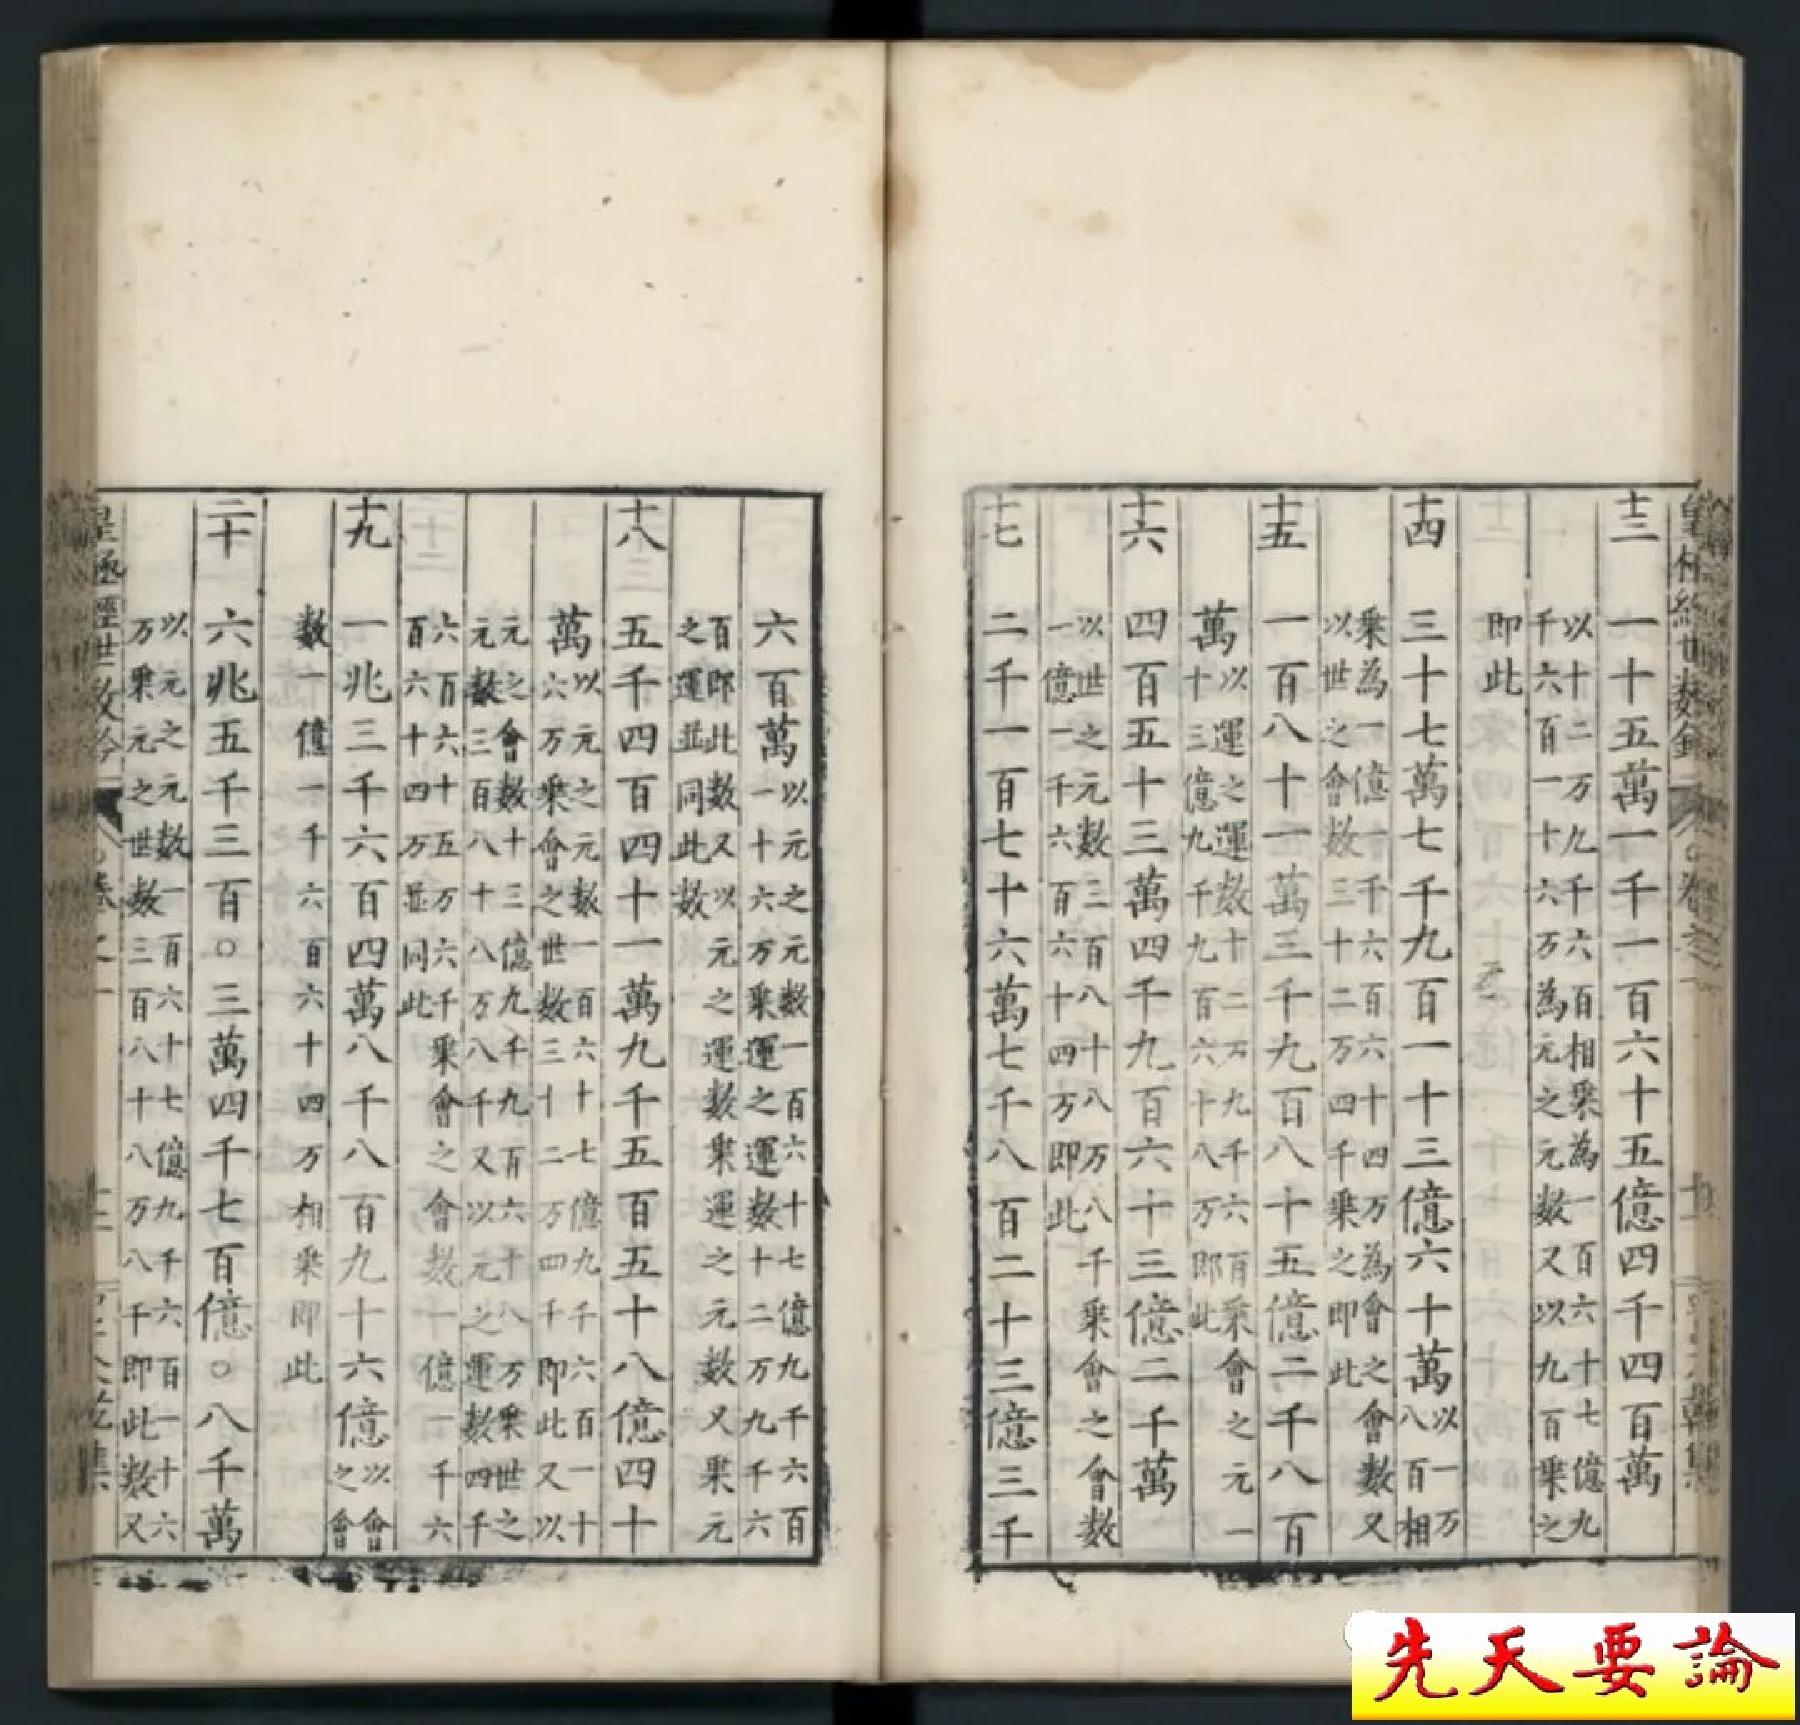 十三　一十五萬一千一百六十五億四千四百萬
以十二万九千六百相乗為一百六十七億九
千六百一十六万為元之元数又以九百乗之
即此
十四　三十七萬七千九百一十三億六十萬以一万
八百相
乗為一億一千六百六十四万為會之會数又
以世之會数三十二万四千乗之即此
十五　一百八十一萬三千九百八十五億二千八百
萬以運之運数十二万九千六百乗會之元一
十三億九千九百六十八万即此
十六　四百五十三萬四千九百六十三億二千萬
以世之元数三百八十八万八千乗會之會数
一億一千六百六十四万即此
十七　二千一百七十六萬七千八百二十三億三千
六百萬以元之元数一百六十七億九千六百
一十六万乗運之運数十二万九千六
百即此数又以元之運数乗運之元数又乗元
之運並同此数
十八　五千四百四十一萬九千五百五十八億四十
萬以元之元数一百六十七億九千六百一十
六万乗會之世数三十二万四千即此又以
元之會数十三億九千九百六十八万乗世之
元数三百八十八万八千又以元之運数四千
六百六十五万六千乗會之會数一億一千六
百六十四万並同此
十九　一兆三千六百四萬八千八百九十六億以會
之會
数一億一千六百六十四万相乗即此
二十　六兆五千三百〇三萬四千七百億〇八千萬
以元之元数一百六十七億九千六百一十六
万乗元之世数三百八十八万八千即此数又
先天要論